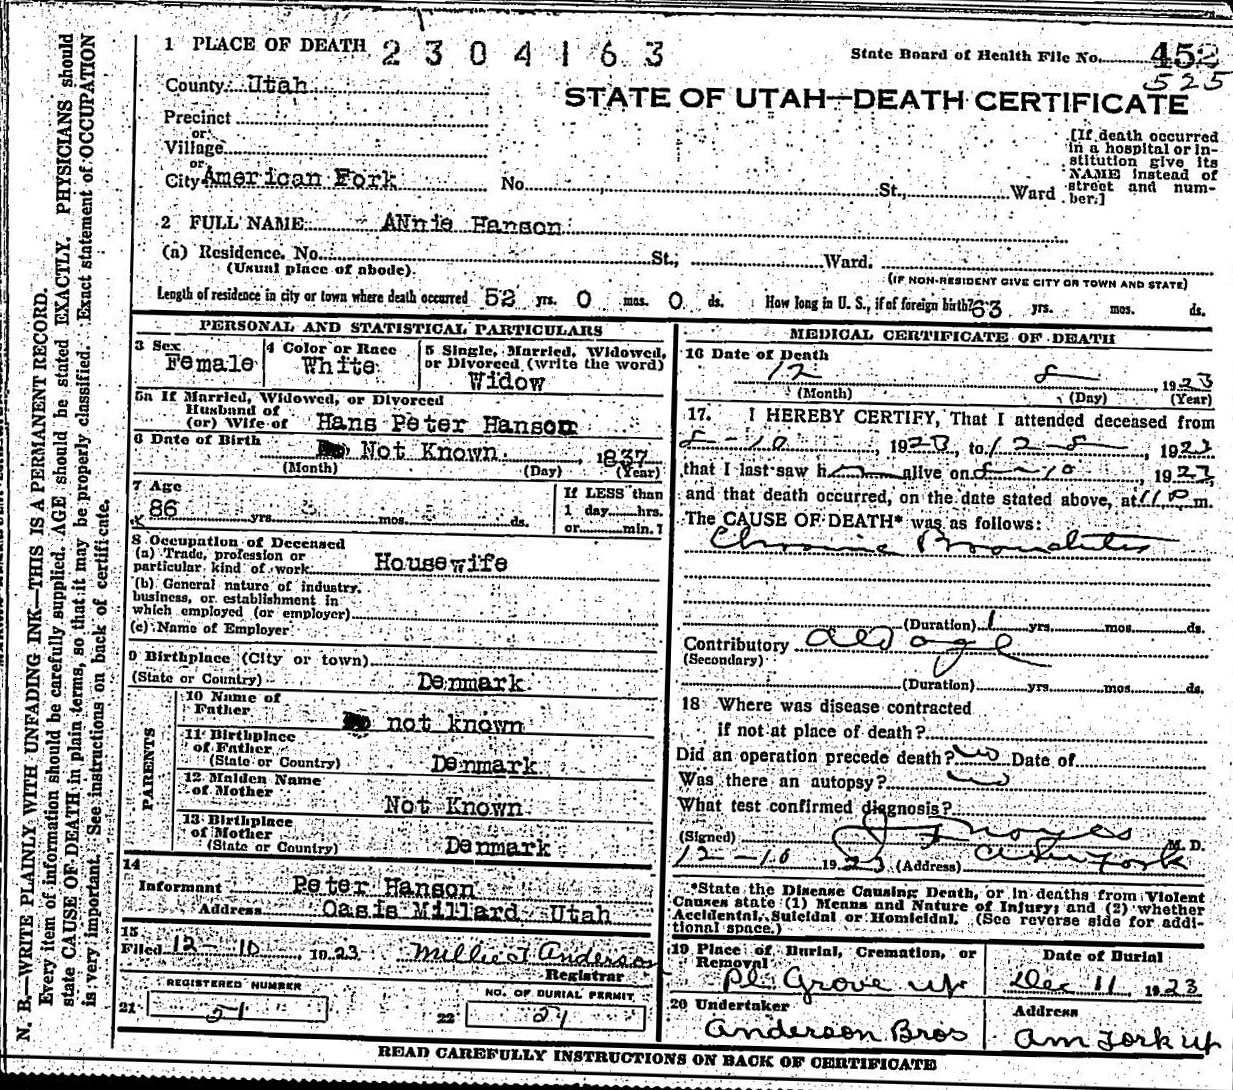 1 PLACE OF DEATH 2304163
State Board of Health File No. 452
525
County Utah
STATE OF UTAH—DEATH CERTIFICATE
Precinct
or
Village
or
City American Fork No. St., Ward
[If death occurred
in a hospital or in-
stitution give its
NAME instead of
street and num-
ber.]
2 FULL NAME ANnie Hanson
(a) Residence. No. St., Ward.
(Usual place of abode).
(IF NON-RESIDENT GIVE CITY OR TOWN AND STATE)
Length of residence in city or town where death occurred 52 yrs. 0 mos. 0 ds. How long in U. S., if of foreign birth? 63 yrs. mos. ds.
PERSONAL AND STATISTICAL PARTICULARS
3 Sex
Female
4 Color or Race
White
5 Single, Married, Widowed,
or Divorced (write the word)
Widow
5a If Married, Widowed, or Divorced
Husband of
(or) Wife of Hans Peter Hanson
6 Date of Birth
Not Known 1837
(Month) (Day) (Year)
7 Age
86 yrs. mos. ds.
If LESS than
1 day hrs.
or min.?
8 Occupation of Deceased
(a) Trade, profession or
particular kind of work Housewife
(b) General nature of industry,
business, or establishment in
which employed (or employer)
(c) Name of Employer
9 Birthplace (City or town)
(State or Country) Denmark
PARENTS
10 Name of
Father not known
11 Birthplace
of Father
(State or Country) Denmark
12 Maiden Name
of Mother
Not Known
13 Birthplace
of Mother
(State or Country) Denmark
14
Informant Peter Hanson
Address Oasis Millard Utah
15
Filed 12-10 1923 Millie T Anderson
Registrar
REGISTERED NUMBER
21 51
NO. OF BURIAL PERMIT
22 21
MEDICAL CERTIFICATE OF DEATH
16 Date of Death
12 8, 1923
(Month) (Day) (Year)
17. I HEREBY CERTIFY, That I attended deceased from
8-10, 1923, to 12-8, 1923
that I last saw h alive on 8-10, 1923,
and that death occurred, on the date stated above, at 11 P m.
The CAUSE OF DEATH* was as follows:
Chronic Bronchitis
(Duration) 1 yrs. mos. ds.
Contributory Old age
(Secondary)
(Duration) yrs. mos. ds.
18 Where was disease contracted
if not at place of death?
Did an operation precede death? No Date of
Was there an autopsy? No
What test confirmed diagnosis?
(Signed) Noyes M. D.
12-10 1923 (Address)
*State the Disease Causing Death, or in deaths from Violent
Causes state (1) Means and Nature of Injury; and (2) whether
Accidental, Suicidal or Homicidal. (See reverse side for addi-
tional space.)
19 Place of Burial, Cremation, or
Removal
Pl. Grove Ut
Date of Burial
Dec 11, 1923
20 Undertaker
Anderson Bros
Address
Am Fork Ut
READ CAREFULLY INSTRUCTIONS ON BACK OF CERTIFICATE
N. B.—WRITE PLAINLY WITH UNFADING INK—THIS IS A PERMANENT RECORD.
Every item of information should be carefully supplied. AGE should be stated EXACTLY. PHYSICIANS should
state CAUSE OF DEATH in plain terms, so that it may be properly classified. Exact statement of OCCUPATION
is very important. See instructions on back of certificate.